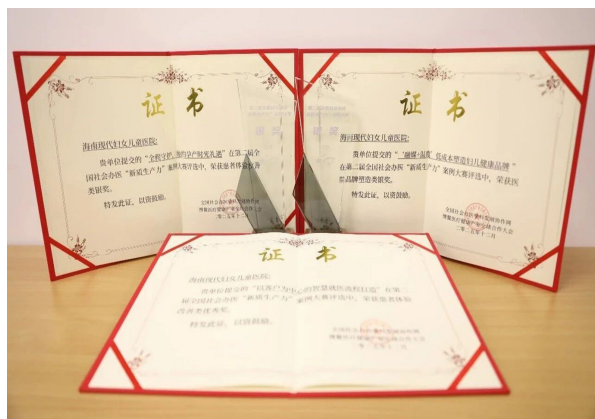 证书
海南现代妇女儿童医院:
贵单位提交的“全程守护
在第二届全
国社会办医“新质生产力”案例大赛评选中,荣获患者体验改善
类银奖。
特发此证,以资鼓励。
二〇二五年十二月
证书
海南现代妇女儿童医院:
贵单位提交的“
低成本塑造妇儿健康品牌”
在第二届全国社会办医“新质生产力”案例大赛评选中,荣获医
院品牌塑造类银奖。
特发此证,以资鼓励。
博鳌医疗健康产业全球合作大会
二〇二五年十二月
证书
海南现代妇女儿童医院:
贵单位提交的“以客户为中心的智慧就医流程打造”在第二
届全国社会办医“新质生产力”案例大赛评选中,荣获患者体验
改善类优秀奖。
特发此证,以资鼓励。